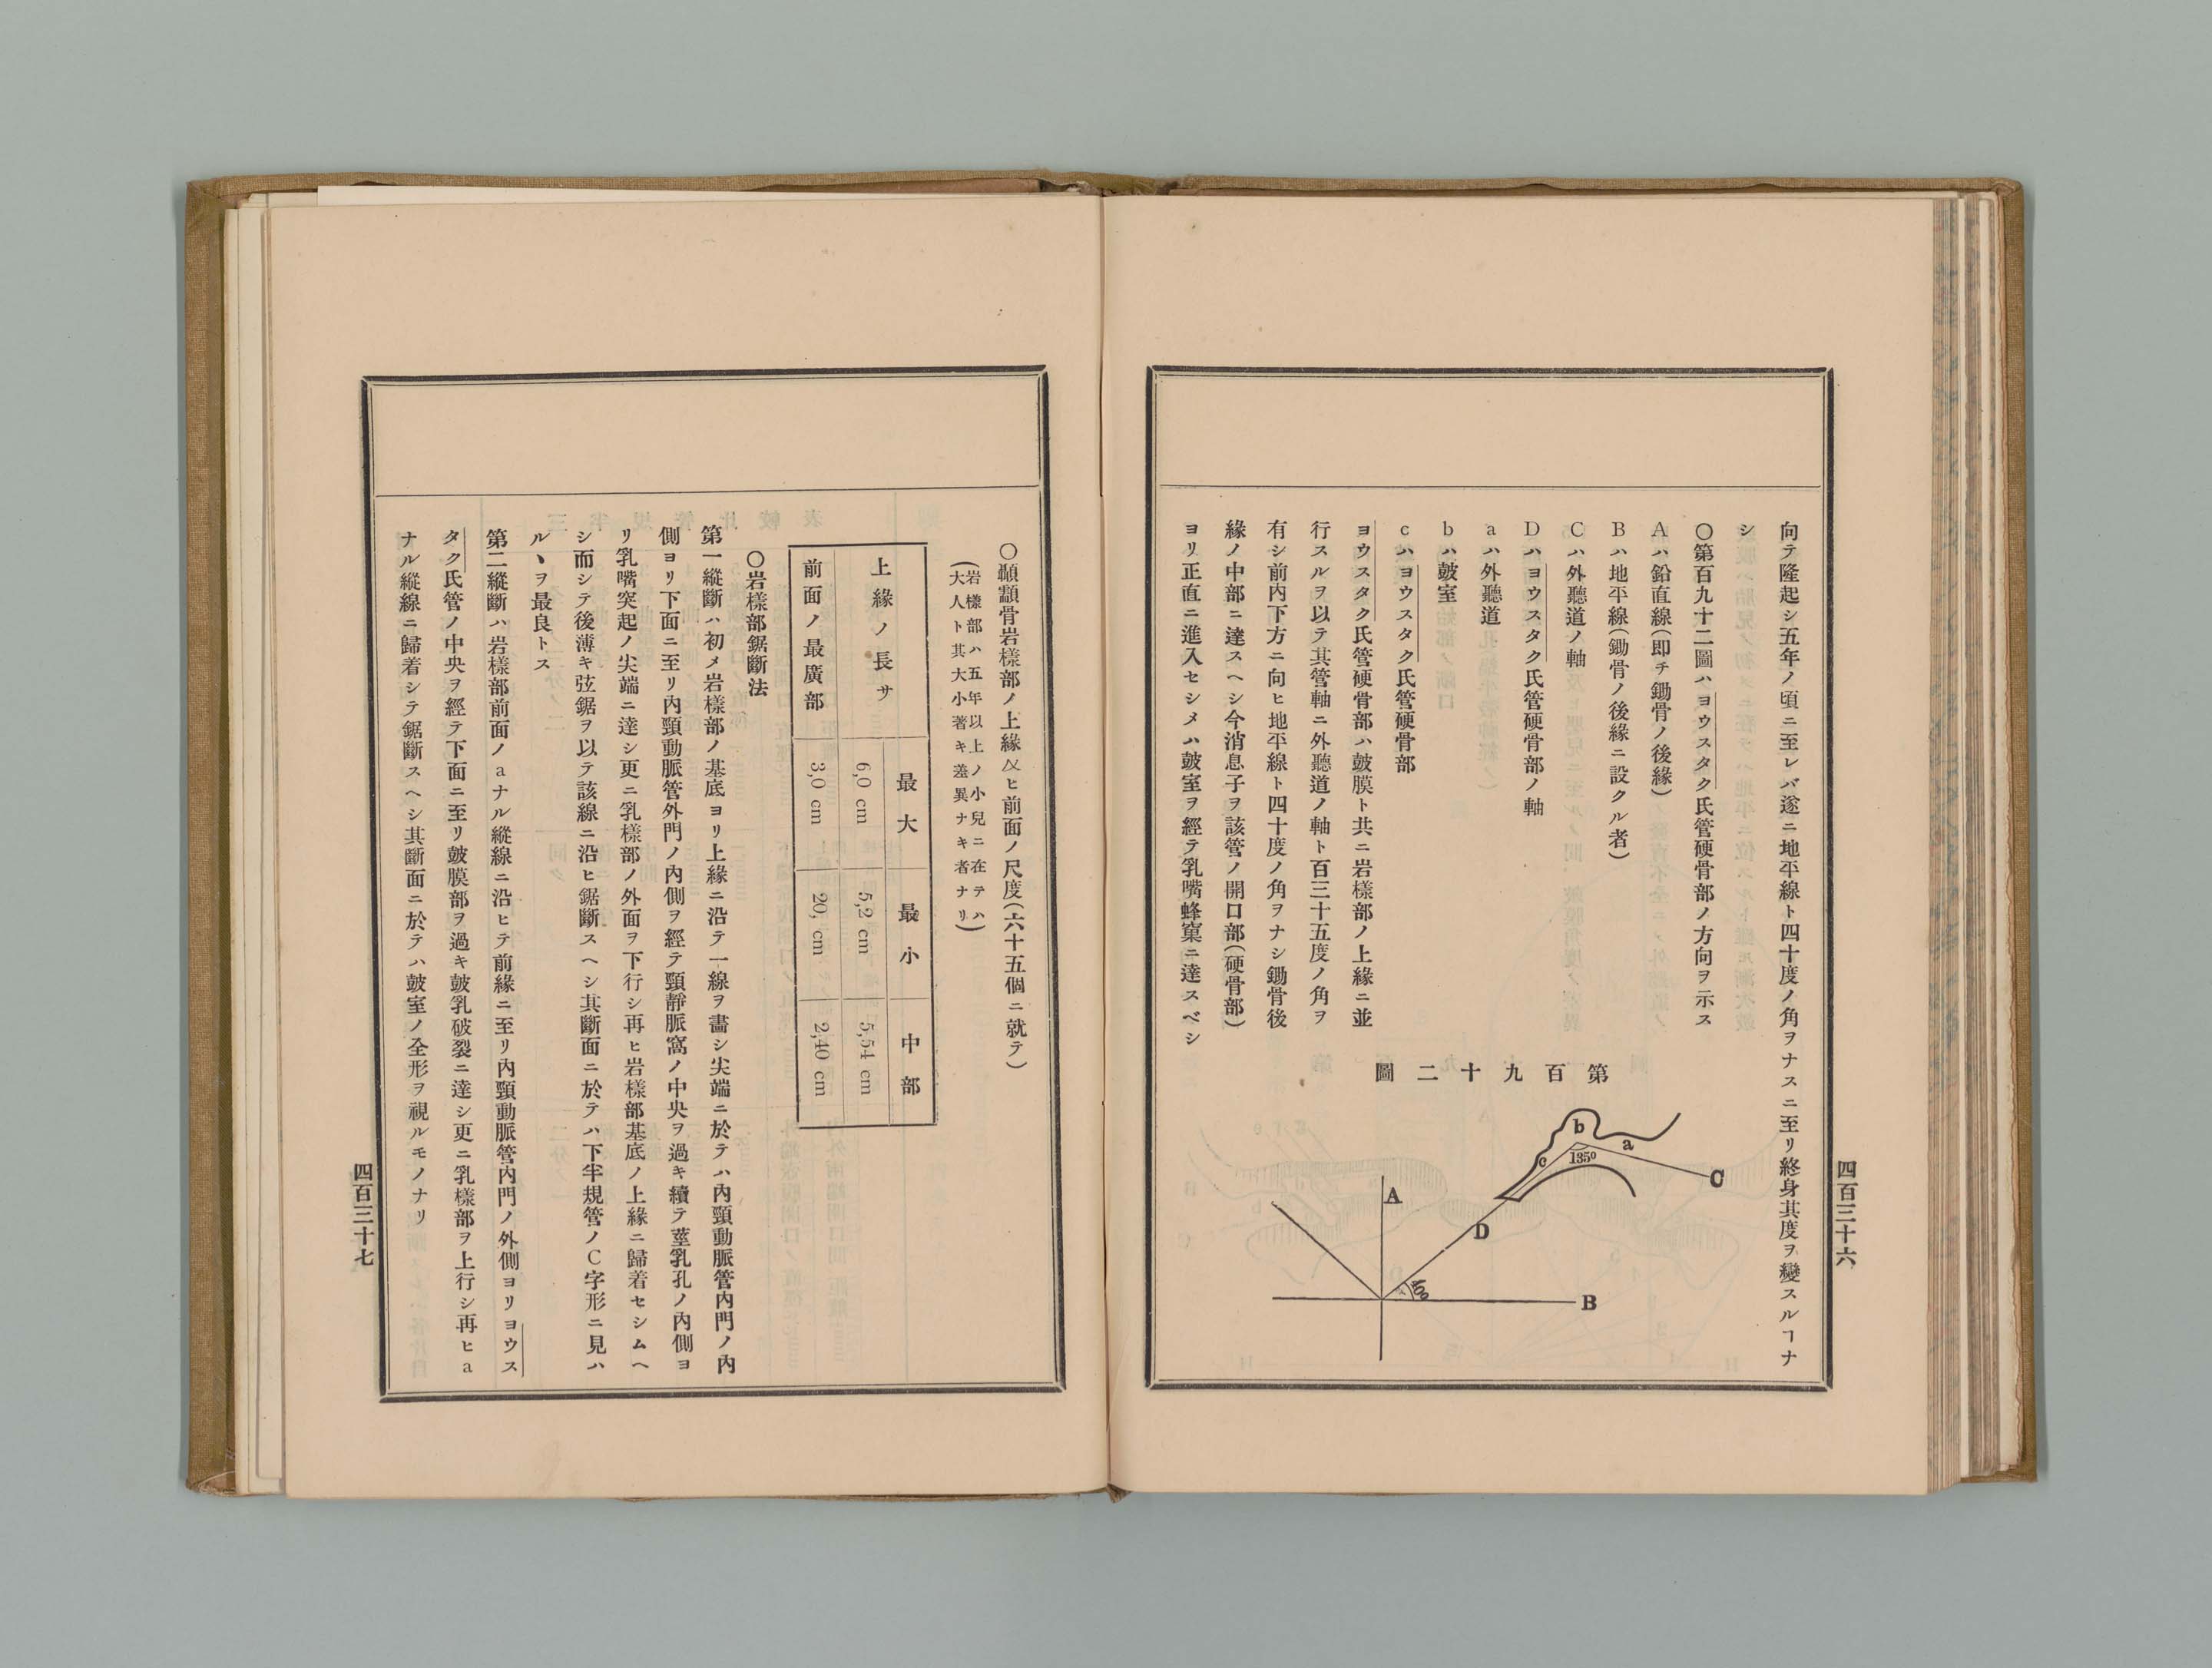 向テ隆起シ五年ノ頃ニ至レバ遂ニ地平線ト四十度ノ角ヲナスニ至リ終身其度ヲ變スルヿナ
シ
〇第百九十二圖ハヨウスタク氏管硬骨部ノ方向ヲ示ス
Aハ鉛直線(即チ鋤骨ノ後緣)
Bハ地平線(鋤骨ノ後緣ニ設クル者)
Cハ外聽道ノ軸
Dハヨウスタク氏管硬骨部ノ軸
aハ外聽道
bハ皷室
cハヨウスタク氏管硬骨部
ヨウスタク氏管硬骨部ハ皷膜ト共ニ岩樣部ノ上緣ニ並
行スルヲ以テ其管軸ニ外聽道ノ軸ト百三十五度ノ角ヲ
有シ前內下方ニ向ヒ地平線ト四十度ノ角ヲナシ鋤骨後
緣ノ中部ニ達スヘシ今消息子ヲ該管ノ開口部(硬骨部)
ヨリ正直ニ進入セシメハ皷室ヲ經テ乳嘴蜂窠ニ達スベシ
第百九十二圖
b
a
c
135º
C
A
D
B
四百三十六
〇顳顬骨岩樣部ノ上緣及ヒ前面ノ尺度(六十五個ニ就テ)
(岩樣部ハ五年以上ノ小兒ニ在テハ
大人ト其大小著キ差異ナキ者ナリ)
最大 最小 中部
上緣ノ長サ 6,0 cm 5,2 cm 5,54 cm
前面ノ最廣部 3,0 cm 20, cm 2,40 cm
〇岩樣部鋸斷法
第一縱斷ハ初メ岩樣部ノ基底ヨリ上緣ニ沿テ一線ヲ畵シ尖端ニ於テハ內頸動脈管內門ノ內
側ヨリ下面ニ至リ內頸動脈管外門ノ內側ヲ經テ頸靜脈窩ノ中央ヲ過キ續テ莖乳孔ノ內側ヨ
リ乳嘴突起ノ尖端ニ達シ更ニ乳樣部ノ外面ヲ下行シ再ヒ岩樣部基底ノ上緣ニ歸着セシムヘ
シ而シテ後薄キ弦鋸ヲ以テ該線ニ沿ヒ鋸斷スヘシ其斷面ニ於テハ下半規管ノC字形ニ見ハ
ルヽヲ最良トス
第二縱斷ハ岩樣部前面ノaナル縱線ニ沿ヒテ前緣ニ至リ內頸動脈管內門ノ外側ヨリヨウス
タク氏管ノ中央ヲ經テ下面ニ至リ皷膜部ヲ過キ皷乳破裂ニ達シ更ニ乳樣部ヲ上行シ再ヒa
ナル縱線ニ歸着シテ鋸斷スヘシ其斷面ニ於テハ皷室ノ全形ヲ視ルモノナリ
四百三十七